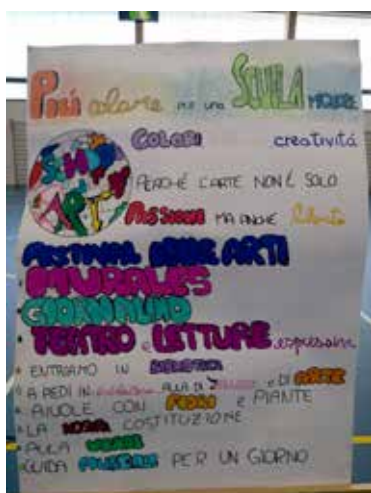 Più colore per una SCUOLA migliore
COLORI creatività
SCHOOL PARTY
PERCHÉ L'ARTE NON È SOLO
PASSIONE MA ANCHE talento
FESTIVAL DELLE ARTI
• MURALES
• GIORNALINO
• TEATRO e LETTURE espressive
• ENTRIAMO IN BIBLIOTECA
• A PIEDI IN AULA DI e DI ARTE
• AIUOLE CON FIORI e PIANTE
• LA NOSTRA COSTITUZIONE
• AULA VERDE
• GUIDA MUSEALE PER UN GIORNO